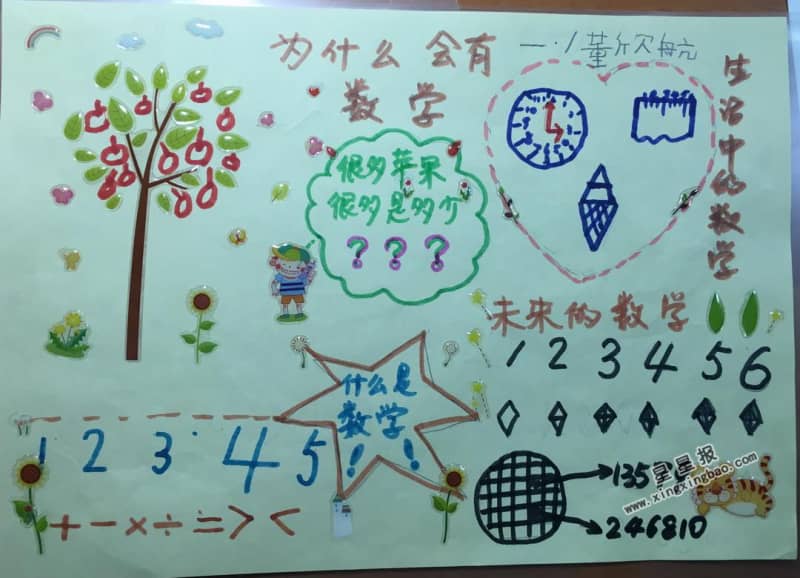 为什么 会有
数学
一.1董欣航
生活中的数学
很多苹果
很多是多少
???
未来的数学
1 2 3 4 5 6
什么是
数学
! !
1 2 3 4 5
+ - × ÷ = > <
135
246810
星星报
www.xingxingbao.com